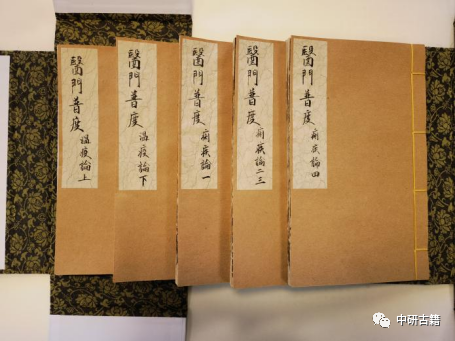 醫門普度 溫疫論上
醫門普度 溫疫論下
醫門普度 痢疾論一
醫門普度 痢疾論二三
醫門普度 痢疾論四
中研古籍